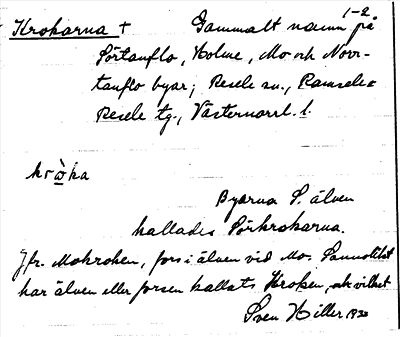 Krokarna † Gammalt namn på 1-2
Sörtanflo, Holme, Mo och Norr-
tanflo byar; Resele sn., Ramsele=
Resele tg., Västernorrl. l.
kròka
Byarna S. älven
kallades Sörkrokarna.
Jfr. Mokroken, fors i älven vid Mo. Sannolikt
har älven eller forsen kallats Kroken, och vilket
Sven Hiller 1930